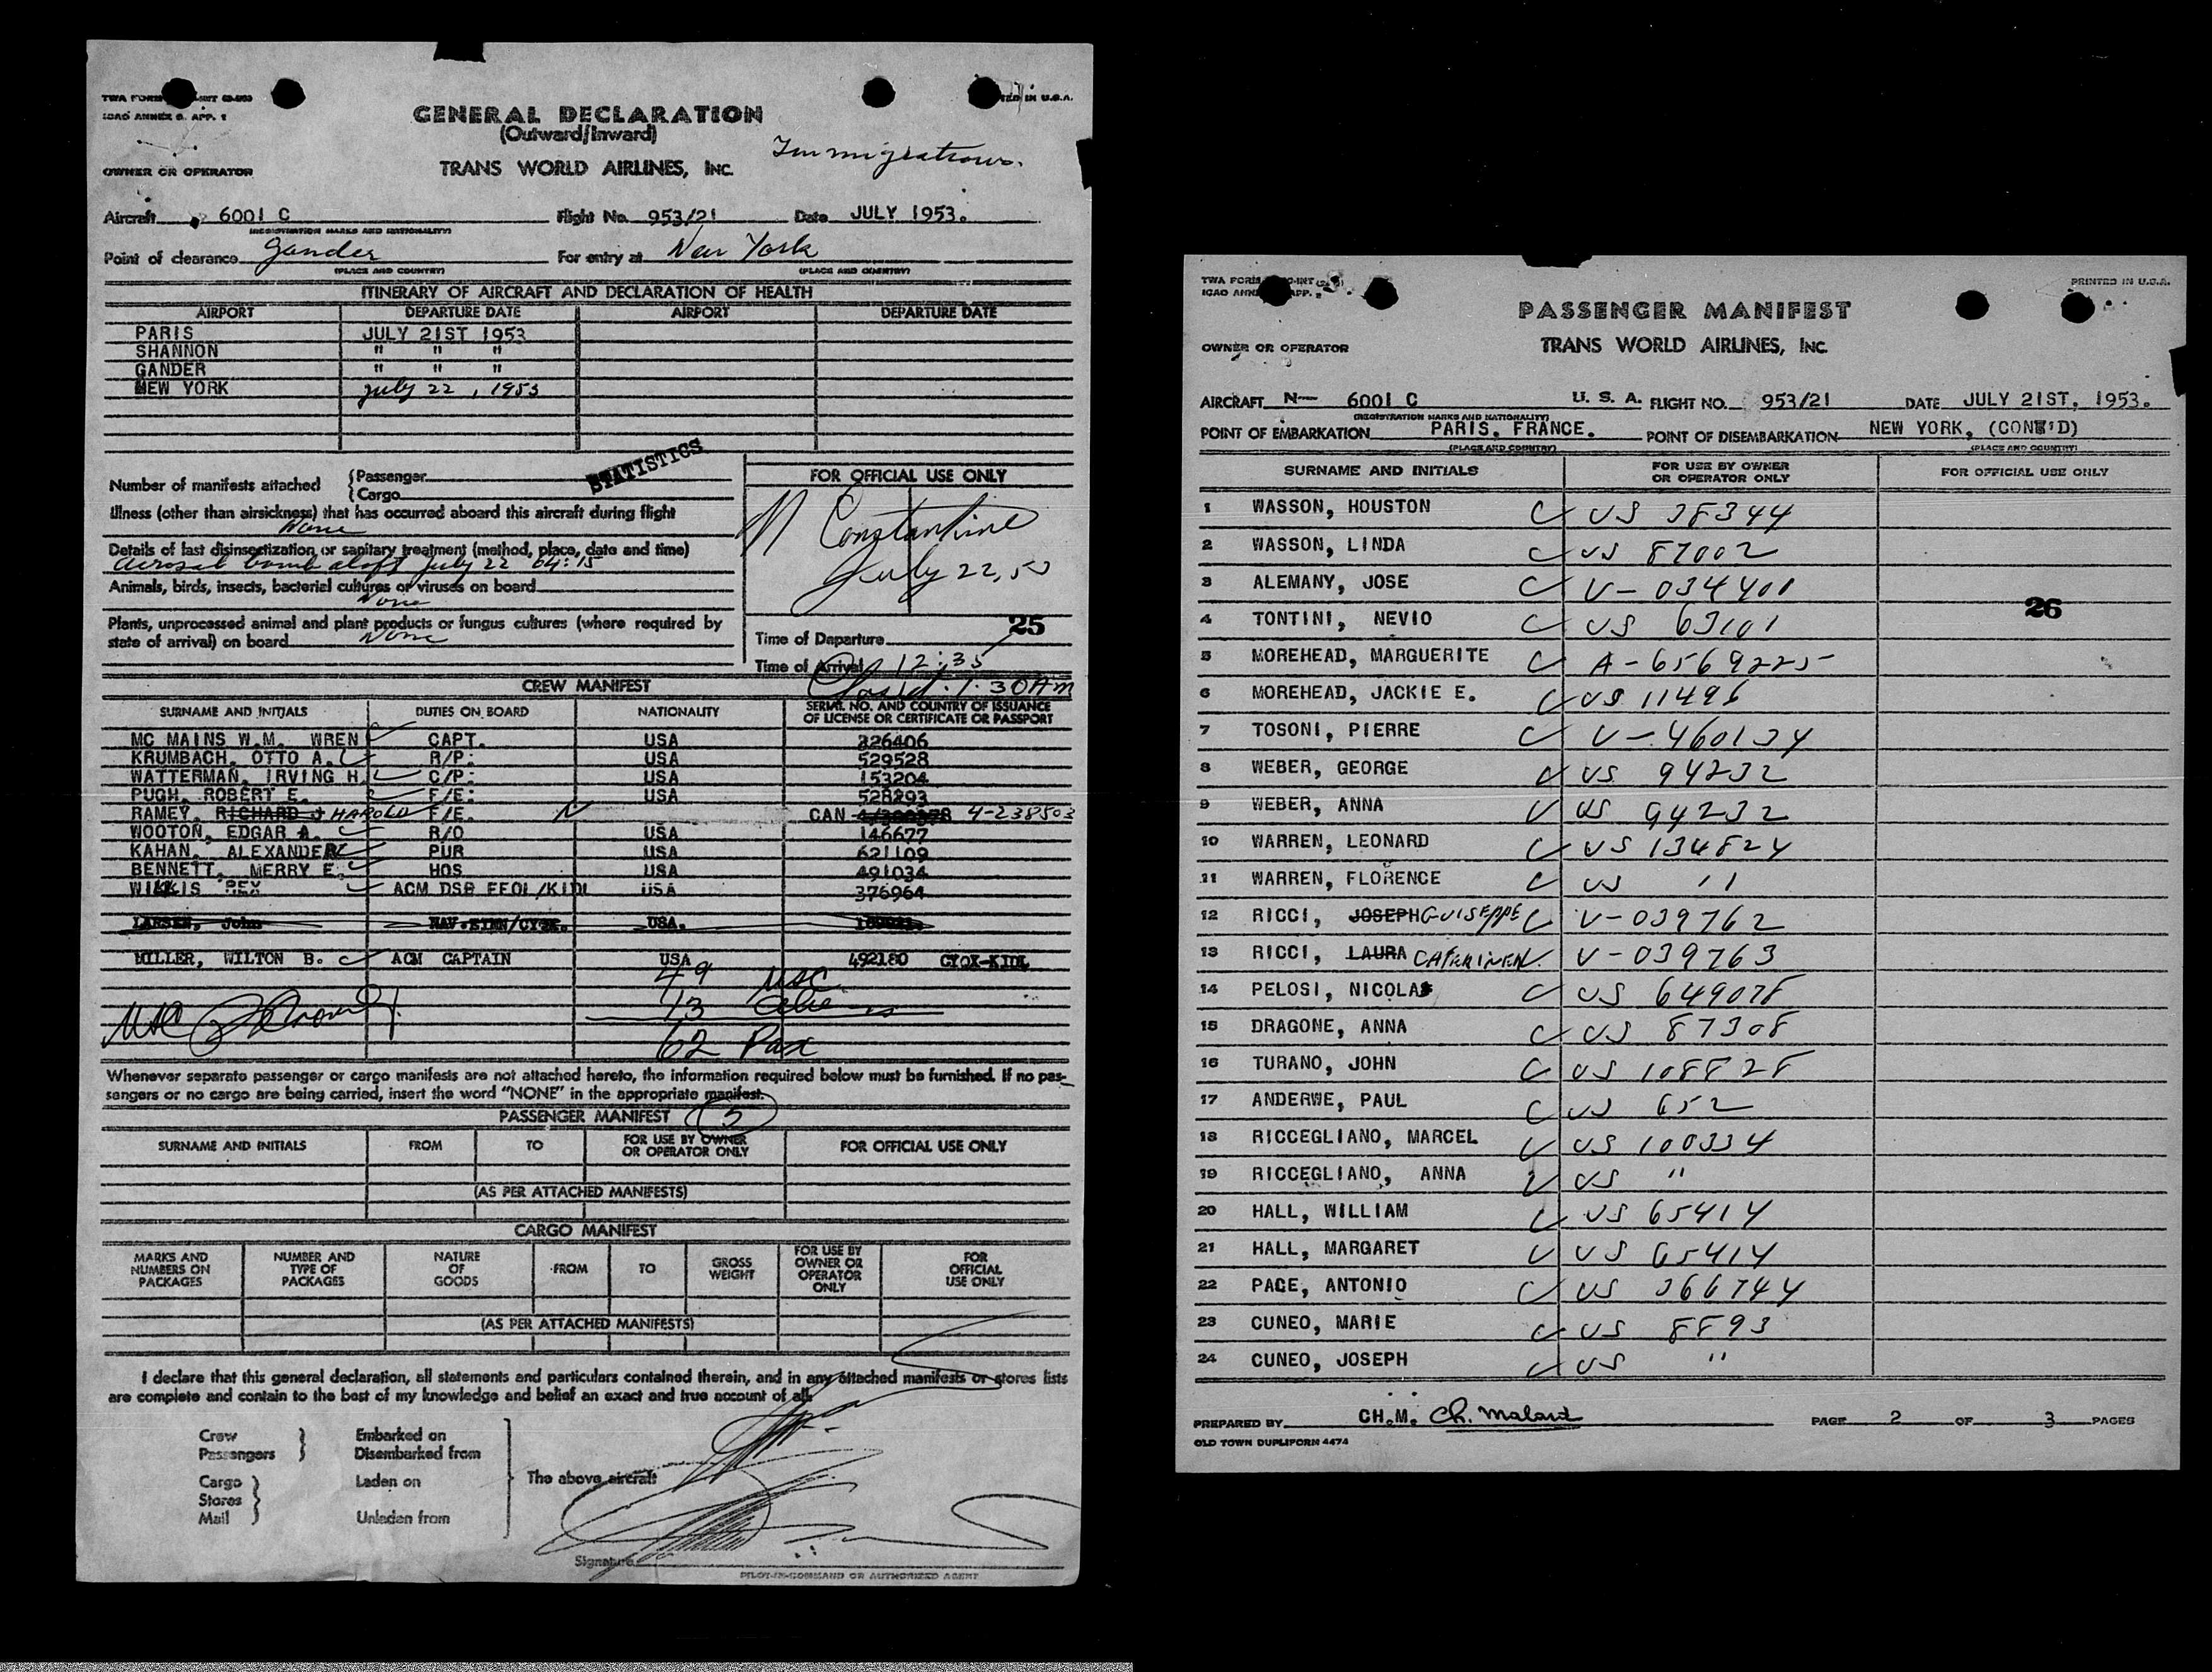 GENERAL DECLARATION
(Outward/Inward)
Immigrations.
OWNER OR OPERATOR TRANS WORLD AIRLINES, INC.
Aircraft 6001 C Flight No. 953/21 Date JULY 1953.
(REGISTRATION MARKS AND NATIONALITY)
Point of clearance Gander For entry at New York
(PLACE AND COUNTRY) (PLACE AND COUNTRY)
ITINERARY OF AIRCRAFT AND DECLARATION OF HEALTH
AIRPORT DEPARTURE DATE AIRPORT DEPARTURE DATE
PARIS JULY 21ST 1953
SHANNON " " "
GANDER " " "
NEW YORK July 22, 1953
STATISTICS
Number of manifests attached { Passenger
{ Cargo
FOR OFFICIAL USE ONLY
Illness (other than airsickness) that has occurred aboard this aircraft during flight
None
Details of last disinsectization or sanitary treatment (method, place, date and time)
Aerosal bomb aloft July 22 04:15
Animals, birds, insects, bacterial cultures or viruses on board
None
Plants, unprocessed animal and plant products or fungus cultures (where required by
state of arrival) on board None
N Constantine
July 22, 53
25
Time of Departure
Time of Arrival 12:35
Closed. 1:30 AM
CREW MANIFEST
SURNAME AND INITIALS DUTIES ON BOARD NATIONALITY SERIAL NO. AND COUNTRY OF ISSUANCE
OF LICENSE OR CERTIFICATE OR PASSPORT
MC MAINS W.M. WREN CAPT. USA 326406
KRUMBACH, OTTO A. R/P: USA 529528
WATTERMAN, IRVING H. C/P: USA 153204
PUGH, ROBERT E. F/E: USA 528293
RAMEY, RICHARD J HAROLD F/E. N CAN 4-238503
WOOTON, EDGAR A. R/O USA 146677
KAHAN, ALEXANDER PUR USA 621109
BENNETT, MERRY E. HOS USA 491034
WILLIS REX ACM DSP EFOL/KIDL USA 376964
LARSEN, John USA.
MILLER, WILTON B. ACM CAPTAIN USA 492180 CYQX-KIDL
49 USC
13 Aliens
62 Pax
Whenever separate passenger or cargo manifests are not attached hereto, the information required below must be furnished. If no pas-
sengers or no cargo are being carried, insert the word "NONE" in the appropriate manifest.
PASSENGER MANIFEST 5
SURNAME AND INITIALS FROM TO FOR USE BY OWNER
OR OPERATOR ONLY FOR OFFICIAL USE ONLY
(AS PER ATTACHED MANIFESTS)
CARGO MANIFEST
MARKS AND
NUMBERS ON
PACKAGES NUMBER AND
TYPE OF
PACKAGES NATURE
OF
GOODS FROM TO GROSS
WEIGHT FOR USE BY
OWNER OR
OPERATOR
ONLY FOR
OFFICIAL
USE ONLY
(AS PER ATTACHED MANIFESTS)
I declare that this general declaration, all statements and particulars contained therein, and in any attached manifests or stores lists
are complete and contain to the best of my knowledge and belief an exact and true account of all
Crew } Embarked on
Passengers } Disembarked from
Cargo } Laden on The above aircraft
Stores
Mail } Unladen from
Signature
PILOT-IN-COMMAND OR AUTHORIZED AGENT
PRINTED IN U.S.A.
PASSENGER MANIFEST
OWNER OR OPERATOR TRANS WORLD AIRLINES, INC.
AIRCRAFT N— 6001 C U. S. A. FLIGHT NO. 953/21 DATE JULY 21ST, 1953.
(REGISTRATION MARKS AND NATIONALITY)
POINT OF EMBARKATION PARIS, FRANCE. POINT OF DISEMBARKATION NEW YORK, (CONT'D)
(PLACE AND COUNTRY) (PLACE AND COUNTRY)
SURNAME AND INITIALS FOR USE BY OWNER
OR OPERATOR ONLY FOR OFFICIAL USE ONLY
1 WASSON, HOUSTON US 38344
2 WASSON, LINDA US 87002
3 ALEMANY, JOSE V-034401
26
4 TONTINI, NEVIO US 63101
5 MOREHEAD, MARGUERITE A-6569225
6 MOREHEAD, JACKIE E. US 11496
7 TOSONI, PIERRE V-460134
8 WEBER, GEORGE US 94232
9 WEBER, ANNA US 94232
10 WARREN, LEONARD US 134824
11 WARREN, FLORENCE US "
12 RICCI, JOSEPH GUISEPPE V-039762
13 RICCI, LAURA CATERINA V-039763
14 PELOSI, NICOLA US 649078
15 DRAGONE, ANNA US 87308
16 TURANO, JOHN US 108828
17 ANDERWE, PAUL US 652
18 RICCEGLIANO, MARCEL US 100334
19 RICCEGLIANO, ANNA US "
20 HALL, WILLIAM US 65414
21 HALL, MARGARET US 65414
22 PACE, ANTONIO US 366744
23 CUNEO, MARIE US 8893
24 CUNEO, JOSEPH US "
PREPARED BY CH.M. Ch. Malard PAGE 2 OF 3 PAGES
OLD TOWN DUPLIFORM 4474